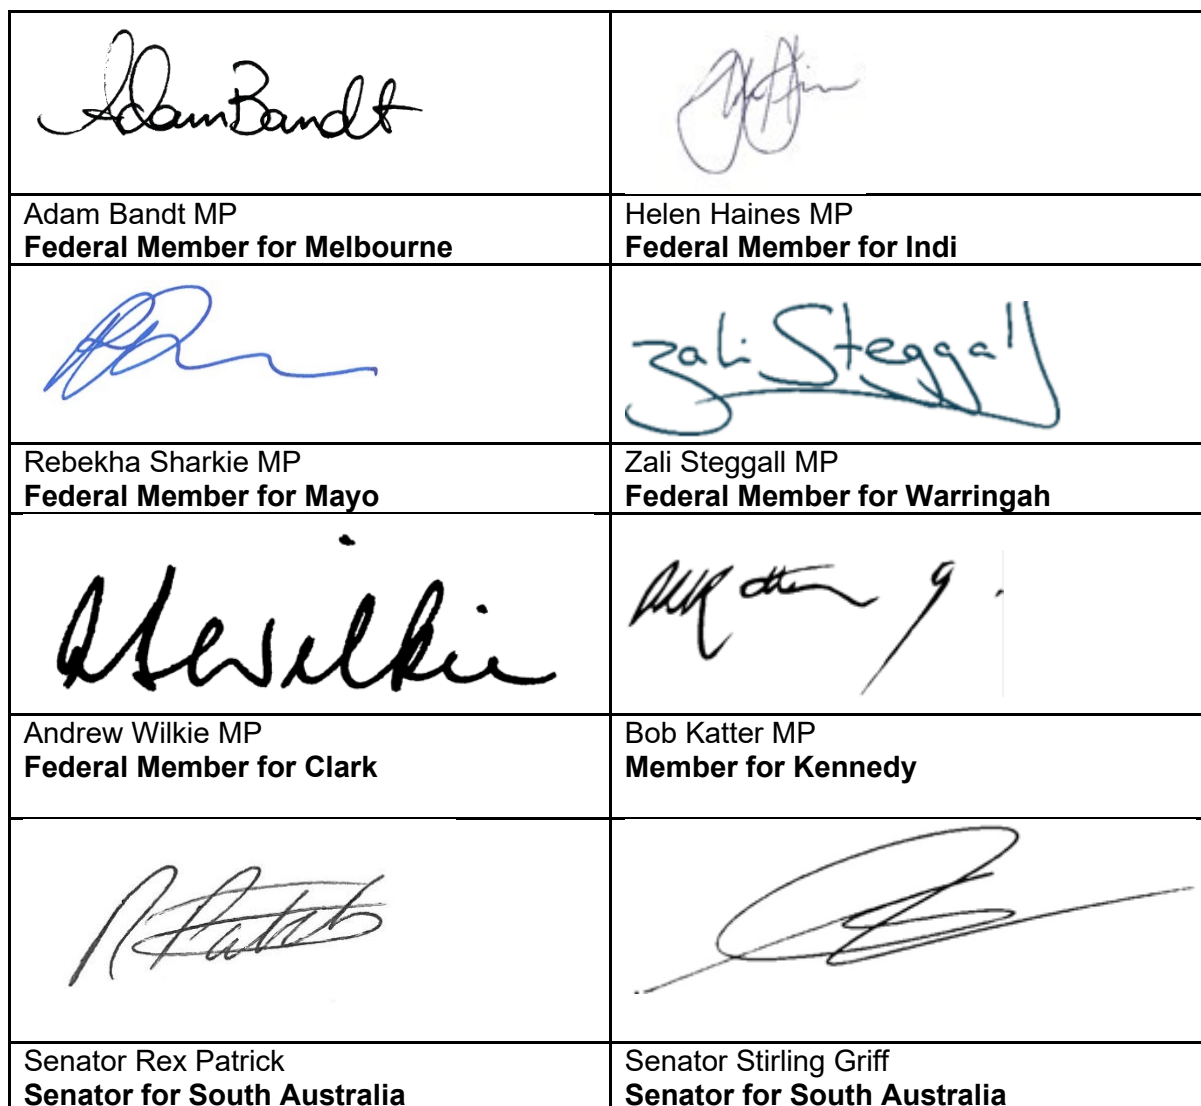 Adam Bandt
Adam Bandt MP
Federal Member for Melbourne
Helen Haines MP
Federal Member for Indi
Zali Steggall
Rebekha Sharkie MP
Federal Member for Mayo
Zali Steggall MP
Federal Member for Warringah
Wilkie
Andrew Wilkie MP
Federal Member for Clark
Bob Katter MP
Member for Kennedy
Senator Rex Patrick
Senator for South Australia
Senator Stirling Griff
Senator for South Australia